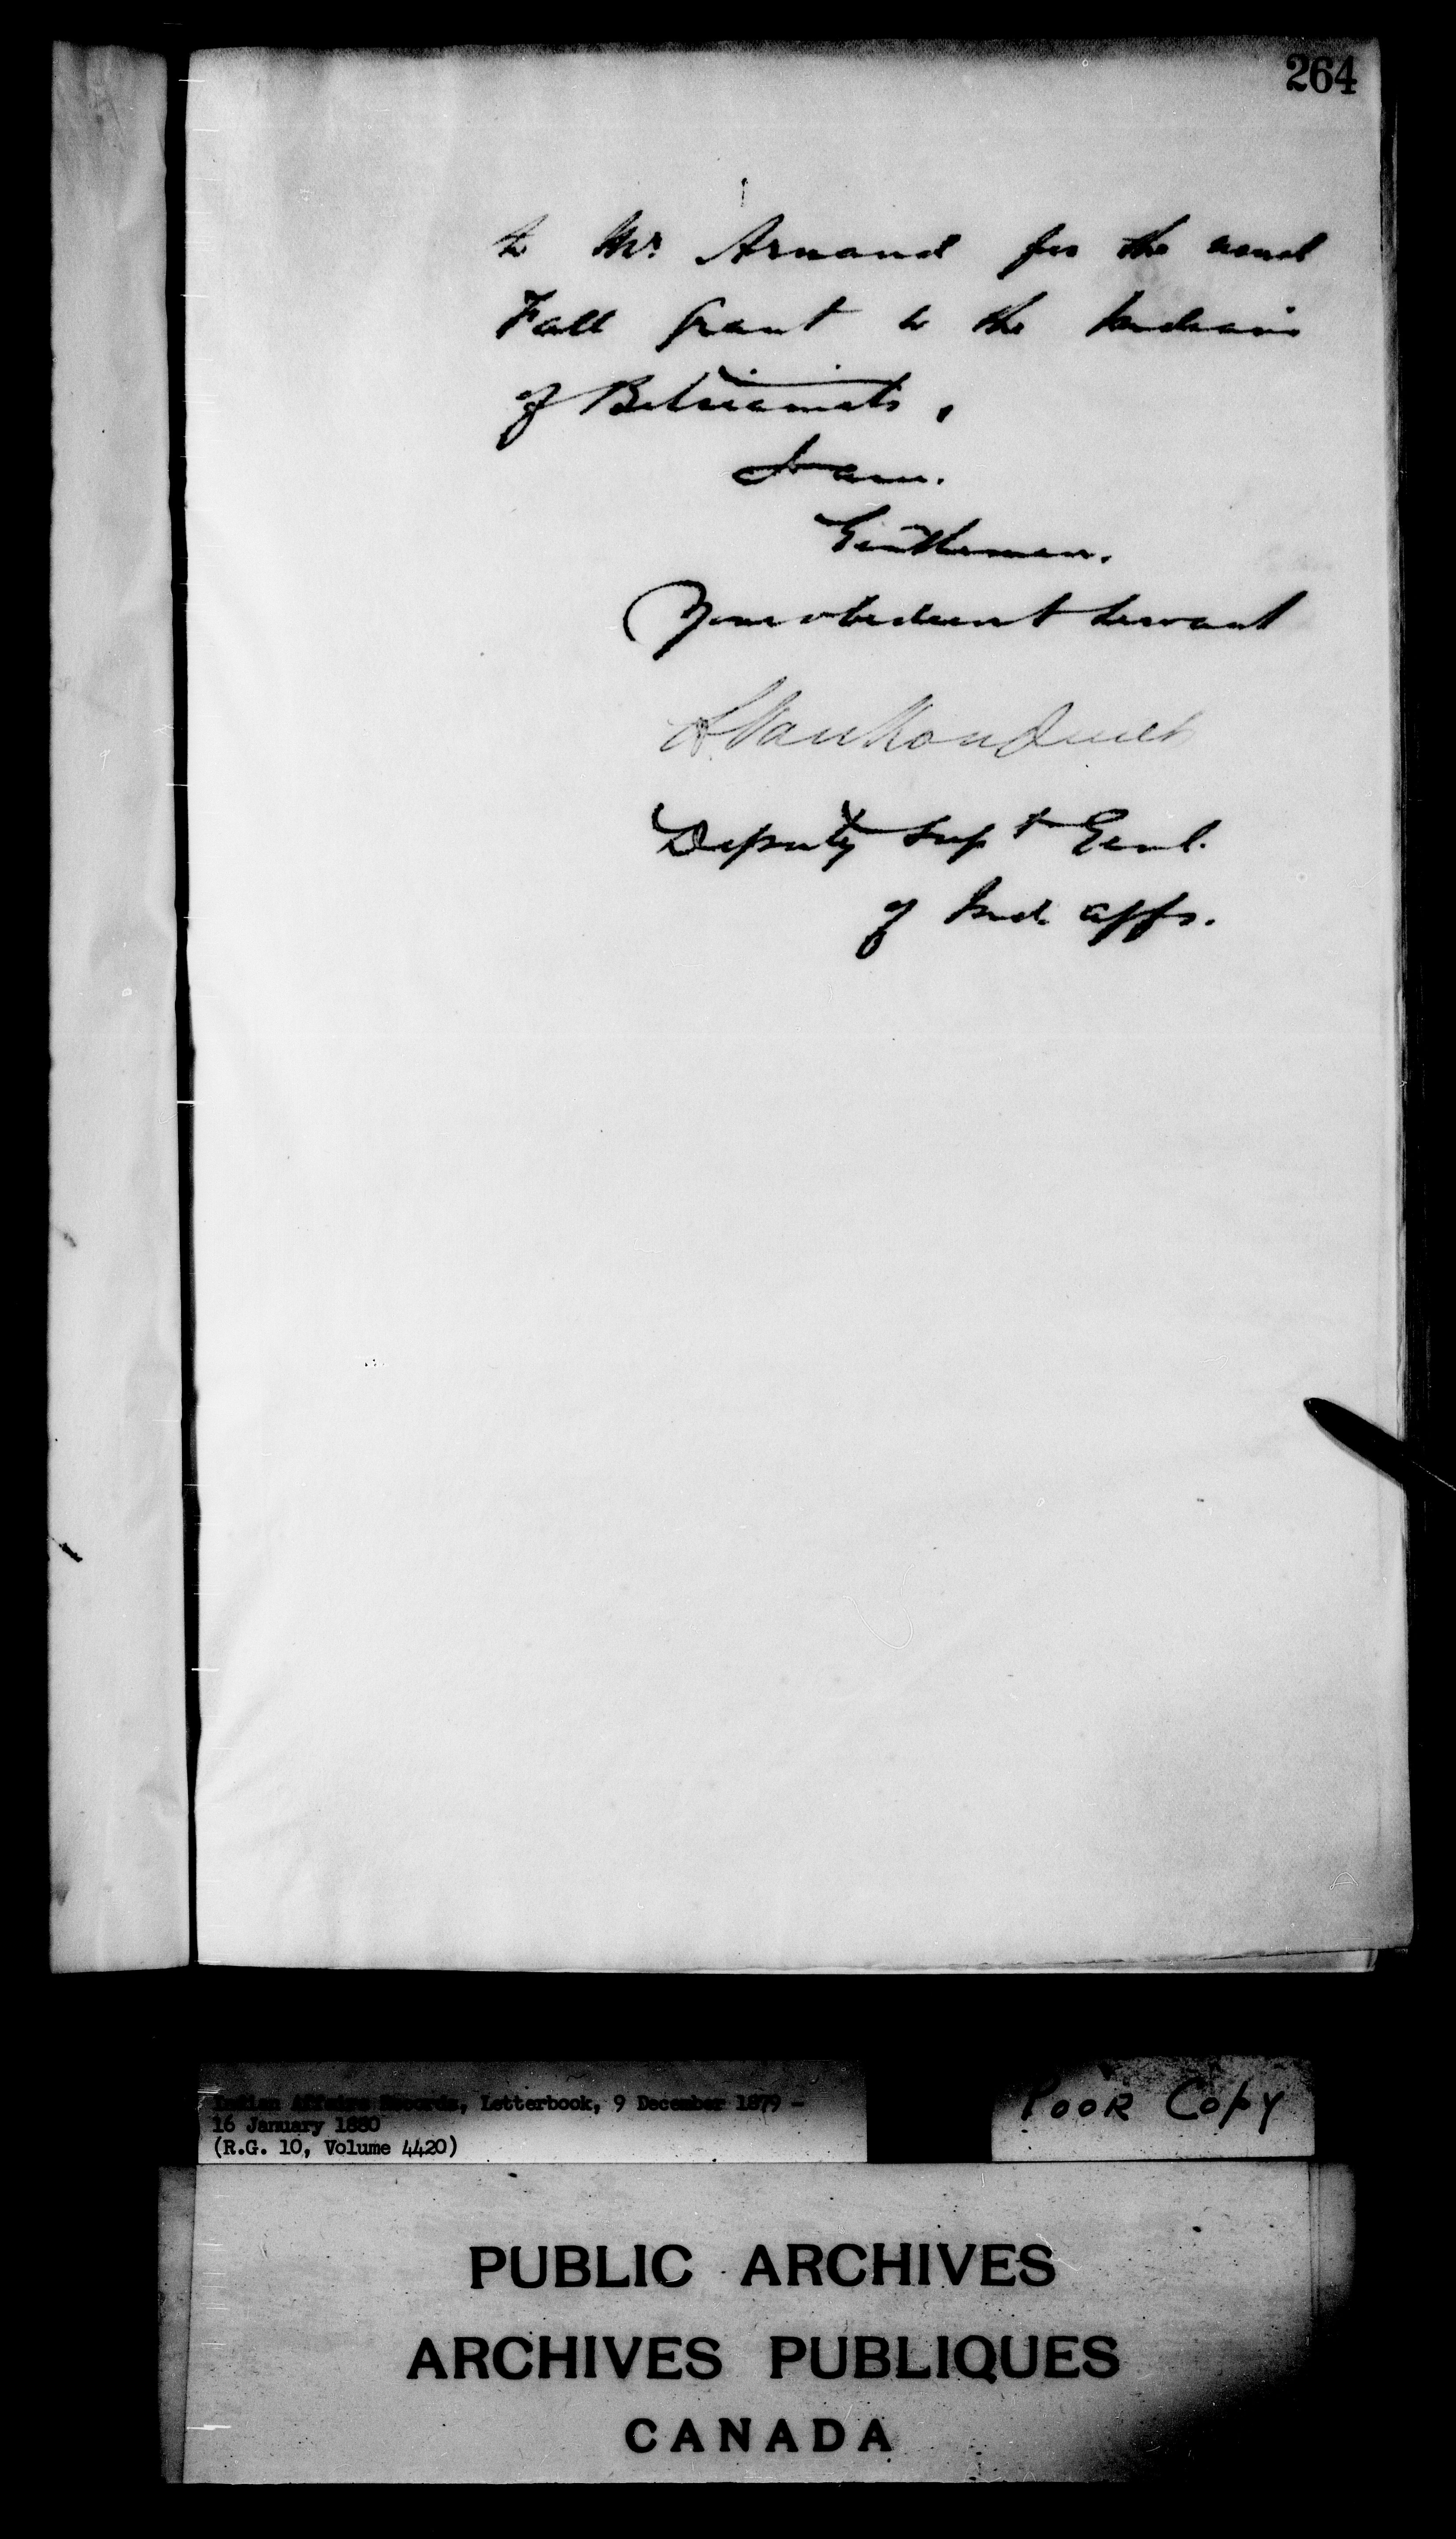 264
to Mr. Arnaud for the usual
Fall Grant to the Indians
of Betsiamits.
I am.
Gentlemen.
Your obedient servant
L. VanKoughnet
Deputy Supt Genl.
of Ind. Affs.
Indian Affairs Records, Letterbook, 9 December 1879 -
16 January 1880
(R.G. 10, Volume 4420)
POOR COPY
PUBLIC ARCHIVES
ARCHIVES PUBLIQUES
CANADA